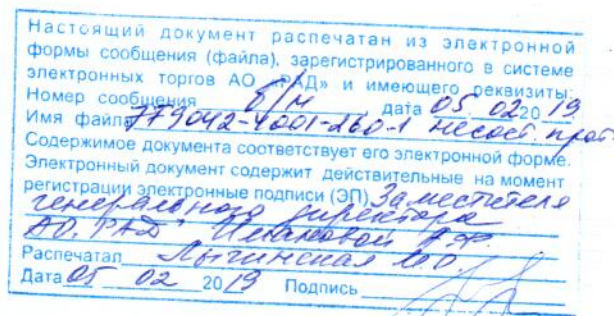 Настоящий документ распечатан из электронной
формы сообщения (файла), зарегистрированного в системе
электронных торгов АО «РАД» и имеющего реквизиты:
Номер сообщения б/н дата 05 02 20 19
Имя файла 779042-4001-260-1 несост. прот.
Содержимое документа соответствует его электронной форме.
Электронный документ содержит действительные на момент
регистрации электронные подписи (ЭП) Заместителя
генерального директора
АО "РАД"
Распечатал Лыгинская
Дата 05 02 20 19 Подпись